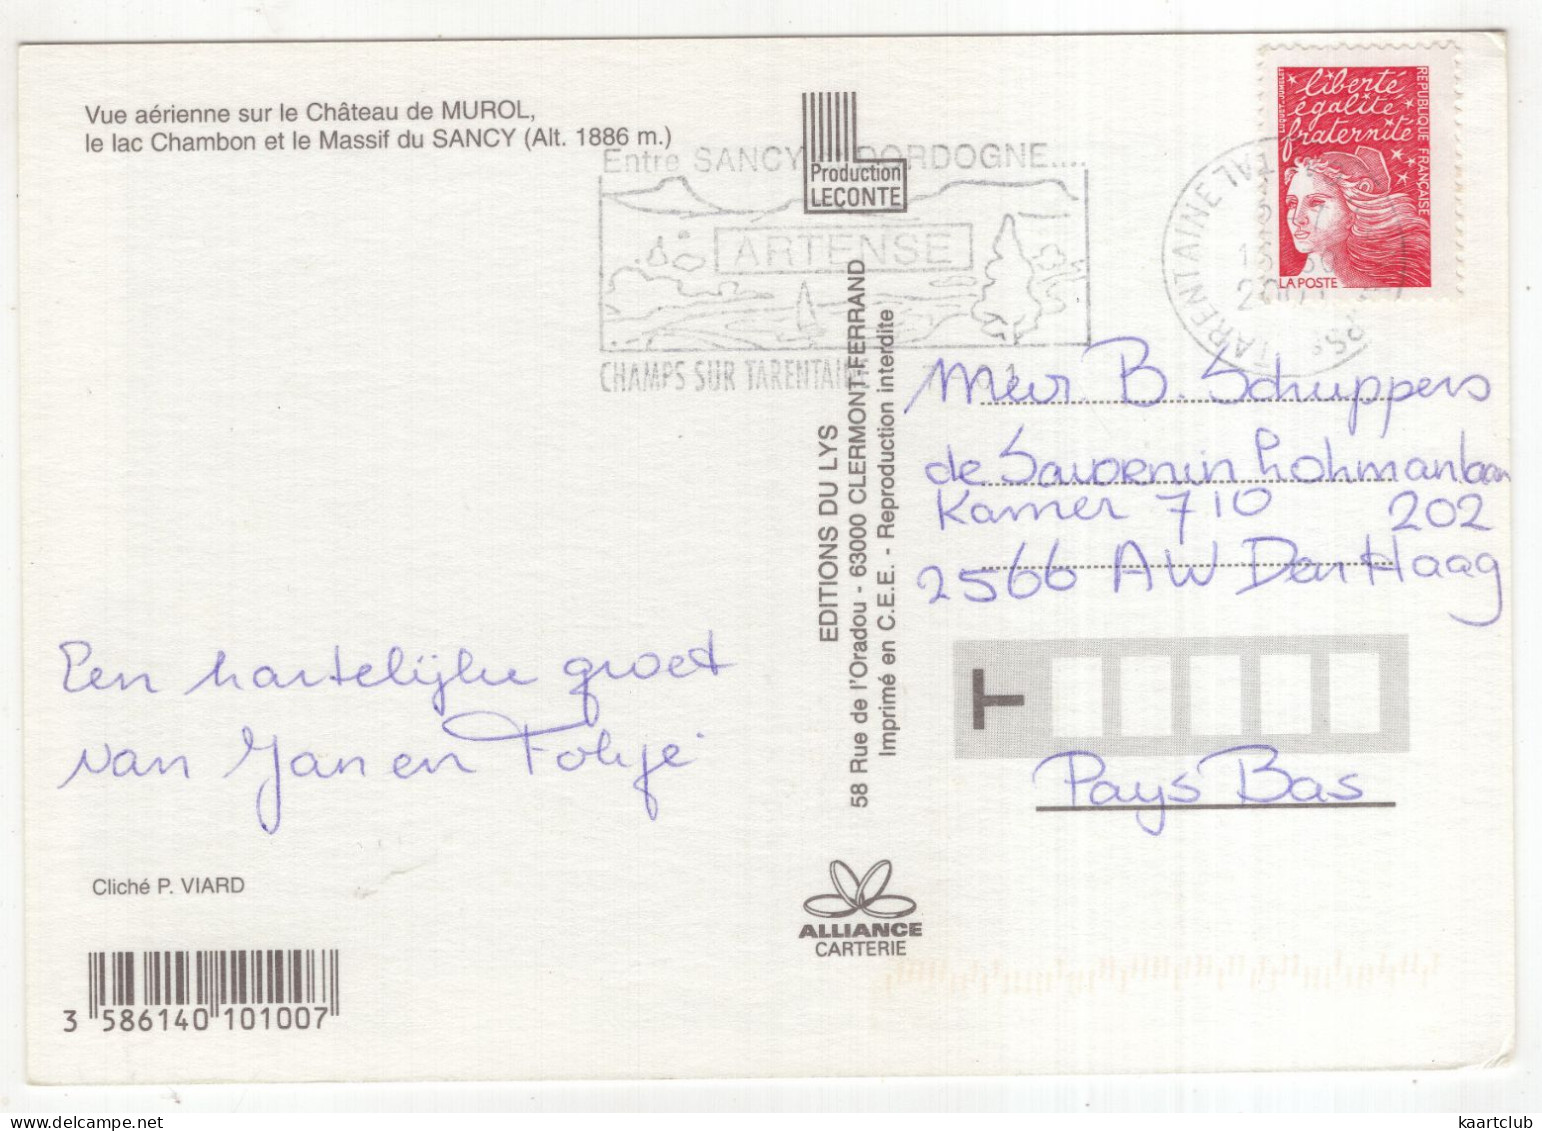 Vue aérienne sur le Château de MUROL,
le lac Chambon et le Massif du SANCY (Alt. 1886 m.)
Entre SANCY DORDOGNE....
ARTENSE
CHAMPS SUR TARENTAINE
Production
LECONTE
liberté
égalité
fraternité
REPUBLIQUE FRANÇAISE
LA POSTE
TARENTAINE
2001
EDITIONS DU LYS
58 Rue de l'Oradou - 63000 CLERMONT-FERRAND
Imprimé en C.E.E. - Reproduction interdite
B. Schuppers
de Savornin Lohmanlaan
Kamer 710 202
2566 AW Den Haag
T
Pays Bas
Een hartelijke groet
van Jan en
Cliché P. VIARD
ALLIANCE
CARTERIE
3 586140 101007
www.delcampe.net
kaartclub